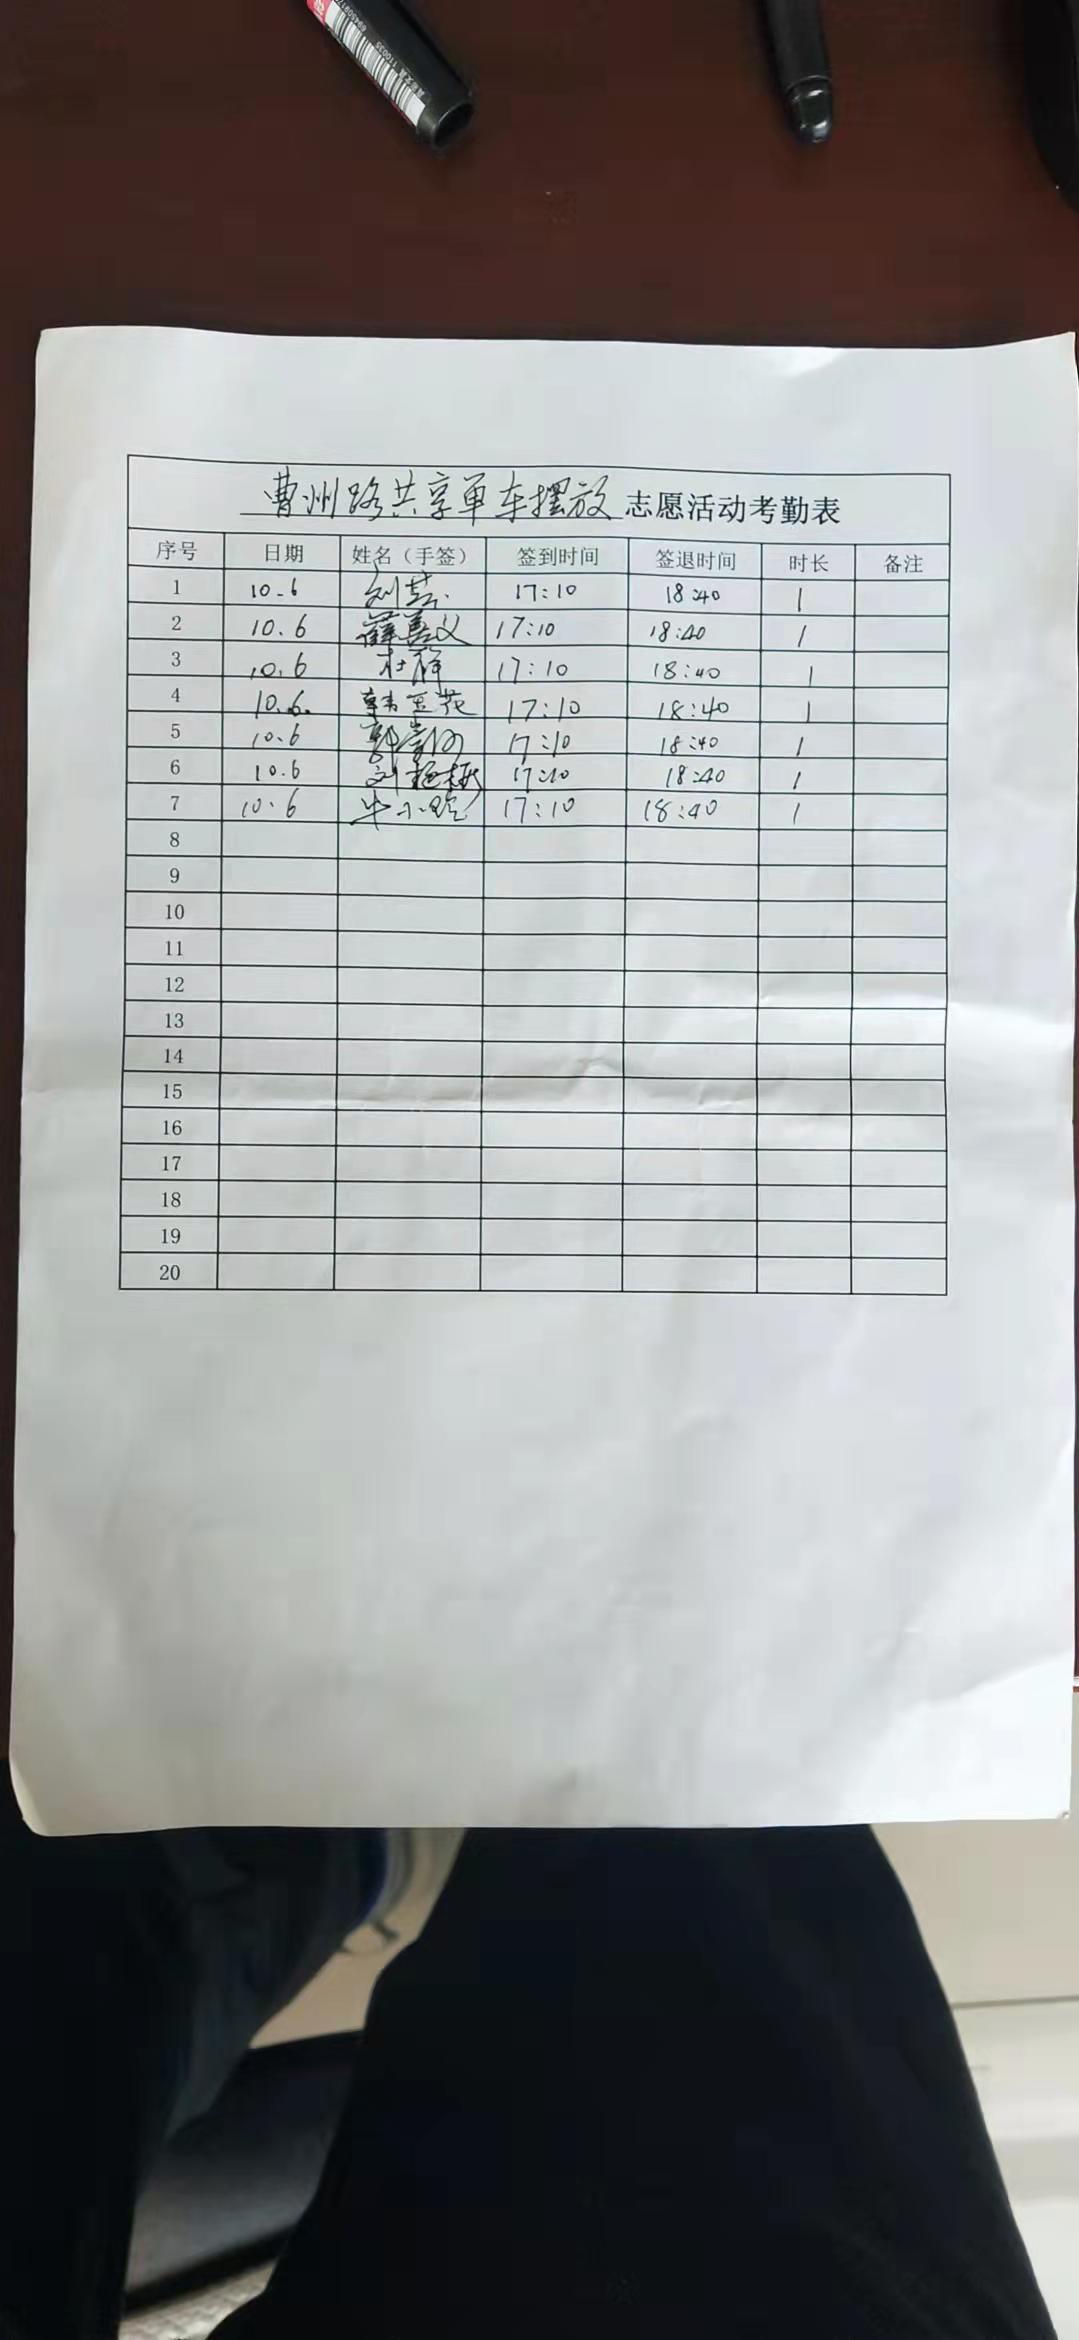 曹州路共享单车摆放志愿活动考勤表
序号 日期 姓名（手签） 签到时间 签退时间 时长 备注
1 10.6 刘芸 17:10 18:40 1
2 10.6 薛善义 17:10 18:40 1
3 10.6 杜静 17:10 18:40 1
4 10.6. 韩玉花 17:10 18:40 1
5 10.6 17:10 18:40 1
6 10.6 刘艳梅 17:10 18:40 1
7 10.6 牛小玲 17:10 18:40 1
8
9
10
11
12
13
14
15
16
17
18
19
20